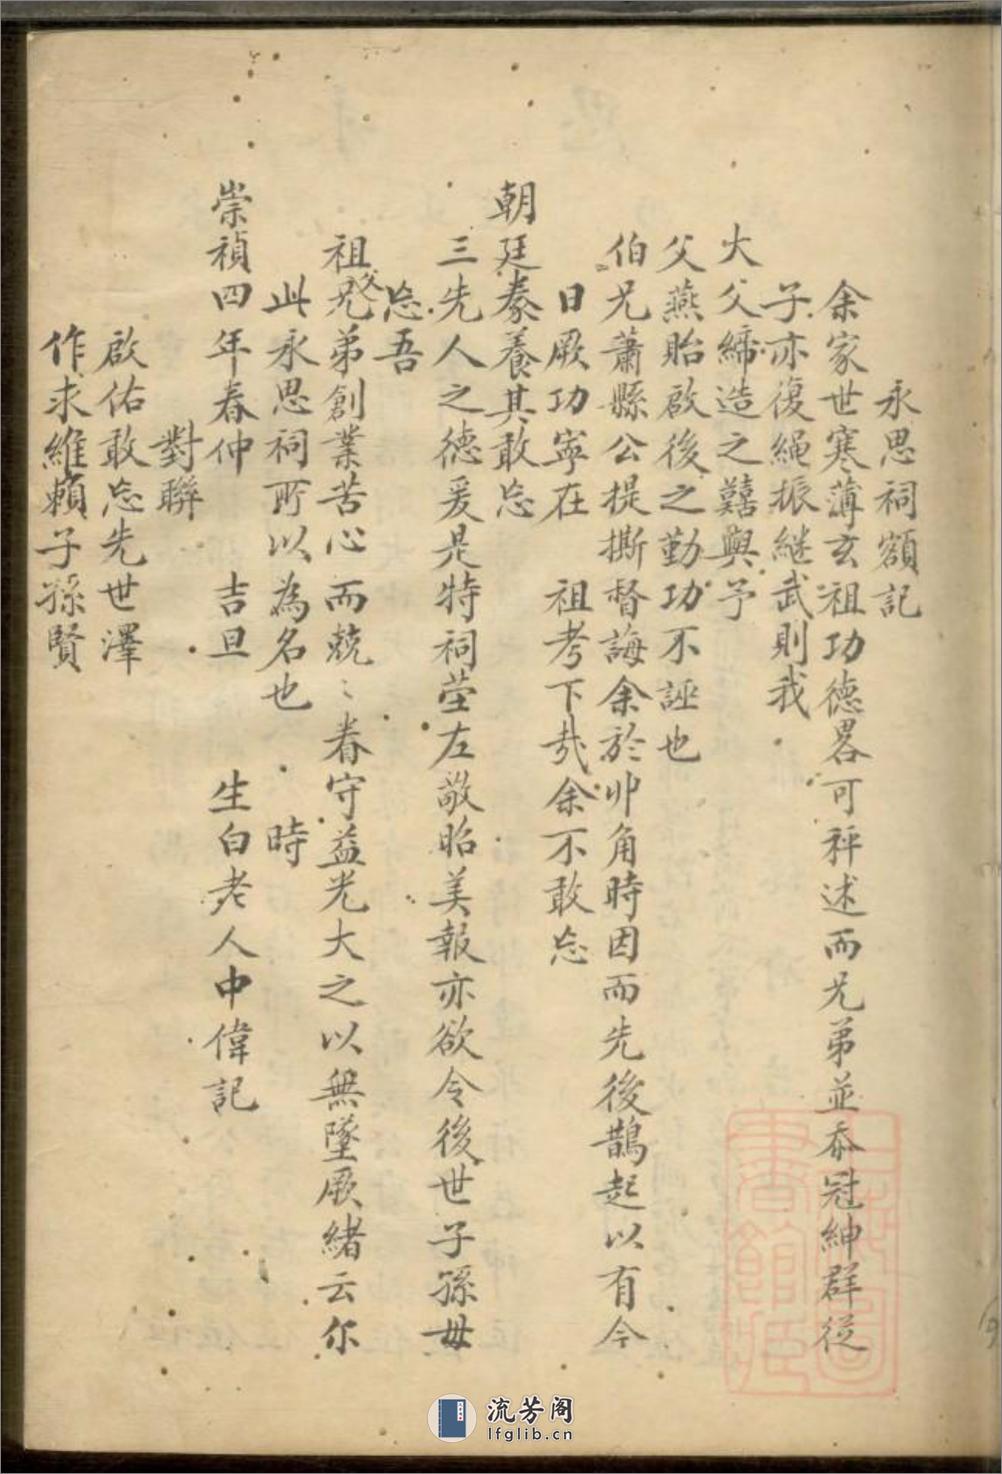 永思祠額記
余家世寒薄玄祖功德畧可秤述而兄弟並忝冠紳群從
子亦復繩振継武則我
大父締造之囏與予
父燕貽啟後之勤功不誣也
伯兄蕭縣公提撕督誨余於丱角時因而先後鵲起以有今
日厥功寧在 祖考下㦲余不敢忘
朝廷豢養其敢忘
三先人之德爰是特祠茔左敬昭美報亦欲令後世子孫毋
忘吾
祖父兄弟創業苦心而兢〻眷守益光大之以無墜厥緒云尔
此永思祠所以為名也 時
崇禎四年春仲 吉旦 生白老人中偉記
對聯
啟佑敢忘先世澤
作求維賴子孫賢
上海圖書館藏
流芳阁
lfglib.cn